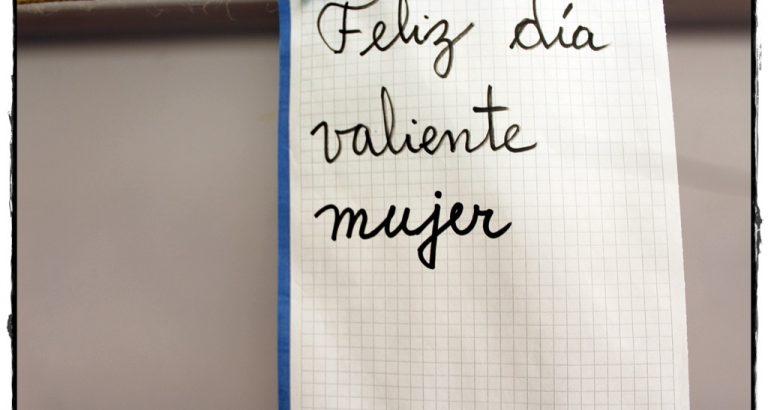 Feliz día
valiente
mujer